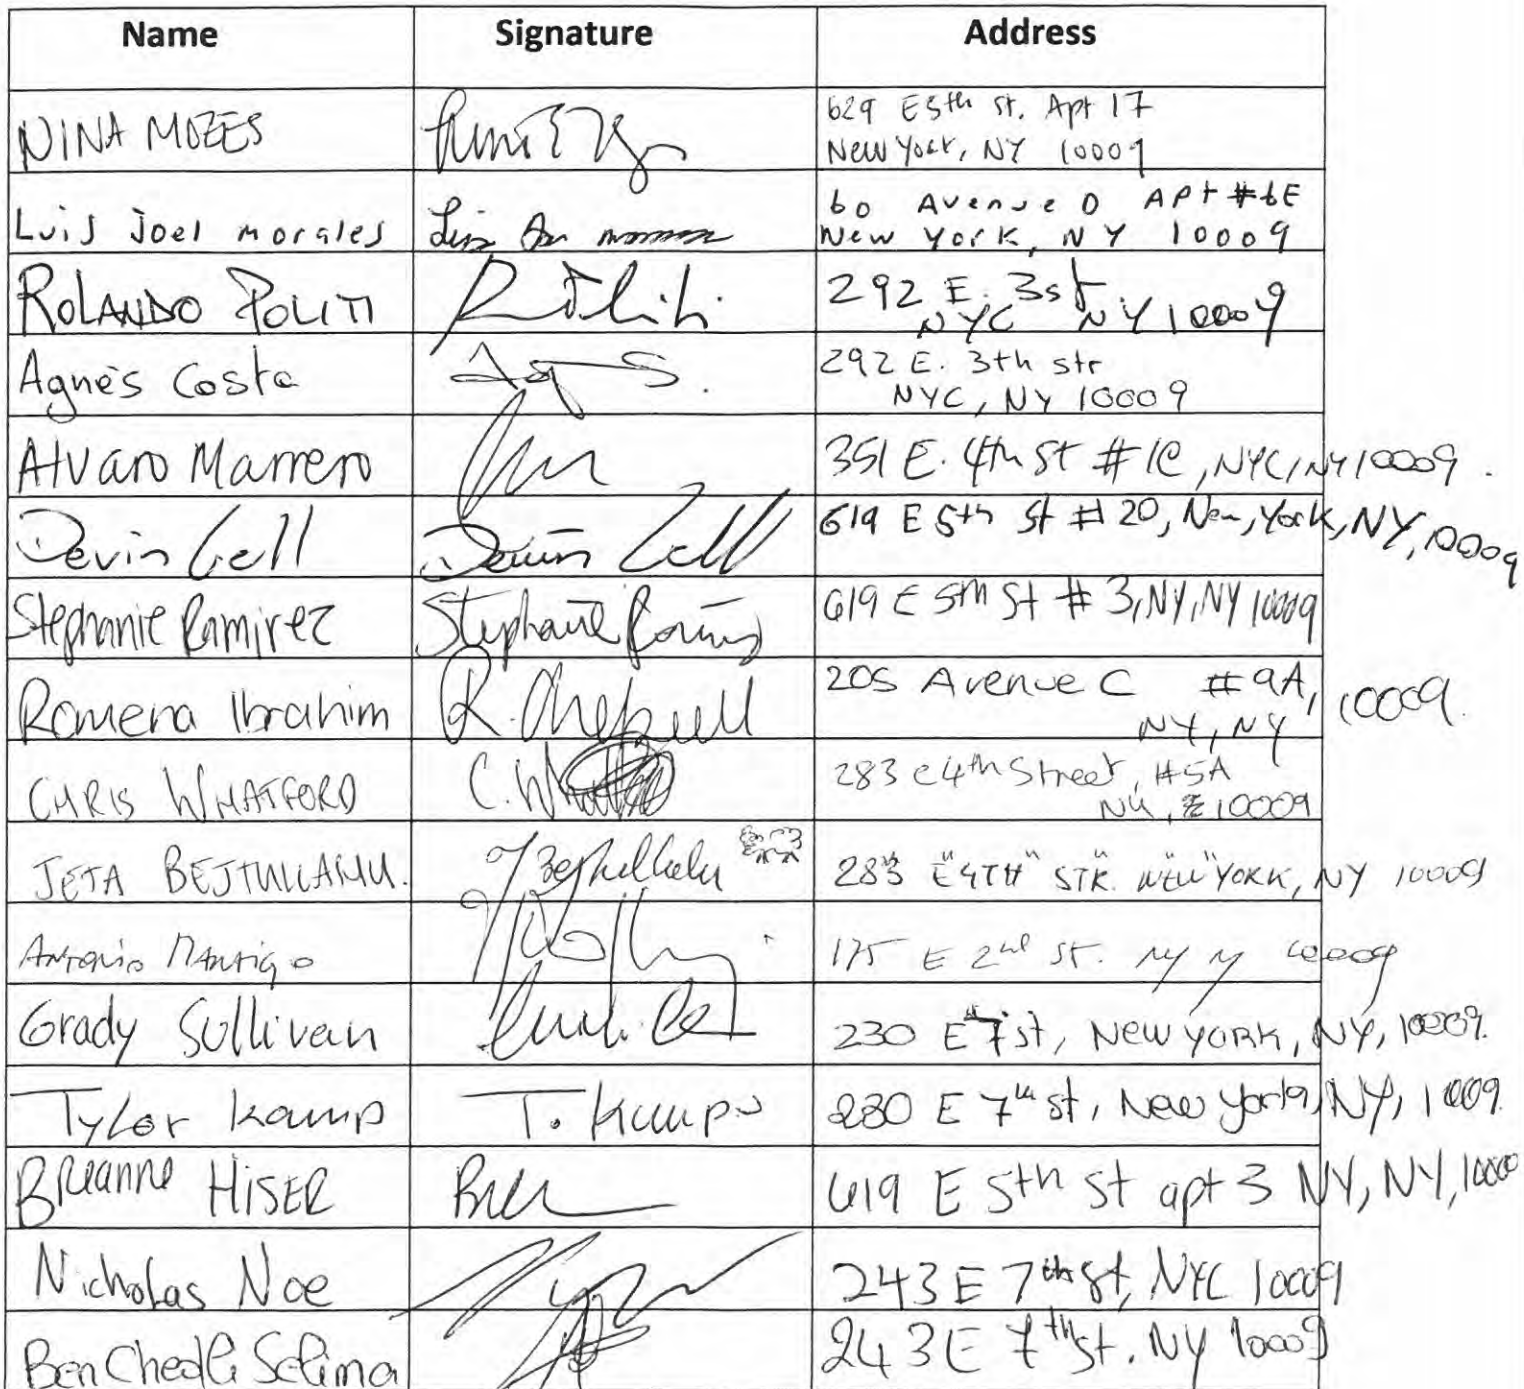 Name Signature Address
NINA MOZES
629 E5th st. Apt 17
New York, NY 10009
Luis Joel Morales
60 Avenue D APt #6E
New York, NY 10009
ROLANDO POLITI
292 E. 3st
NYC NY 10009
Agnès Costa
292 E. 3th str
NYC, NY 10009
Alvaro Marrero
351 E. 4th St #1C, NYC, NY 10009.
Devin Cell Devin Cell
619 E 5th St #20, New, York, NY, 10009
Stephanie Ramirez Stephanie
619 E 5th St # 3, NY, NY 10009
Romena Ibrahim R.
205 Avenue C #9A,
NY, NY 10009.
CHRIS WHATFORD C.
283 e4th Street, #5A
NY, 10009
JETA
E 4TH STR. NEW YORK, NY 10009
ANTONIO
175 E 2nd ST. NY NY 10009
Grady Sullivan
230 E 7th st, New YORK, NY, 10009.
Tyler Kamp T. Kamp
230 E 7th st, New York, NY, 10009.
Breanne HISER
619 E 5th St apt 3 NY, NY, 1000
Nicholas Noe
243 E 7th St, NYC 10009
Ben Chedli Selima
243 E 7th St. NY 10009